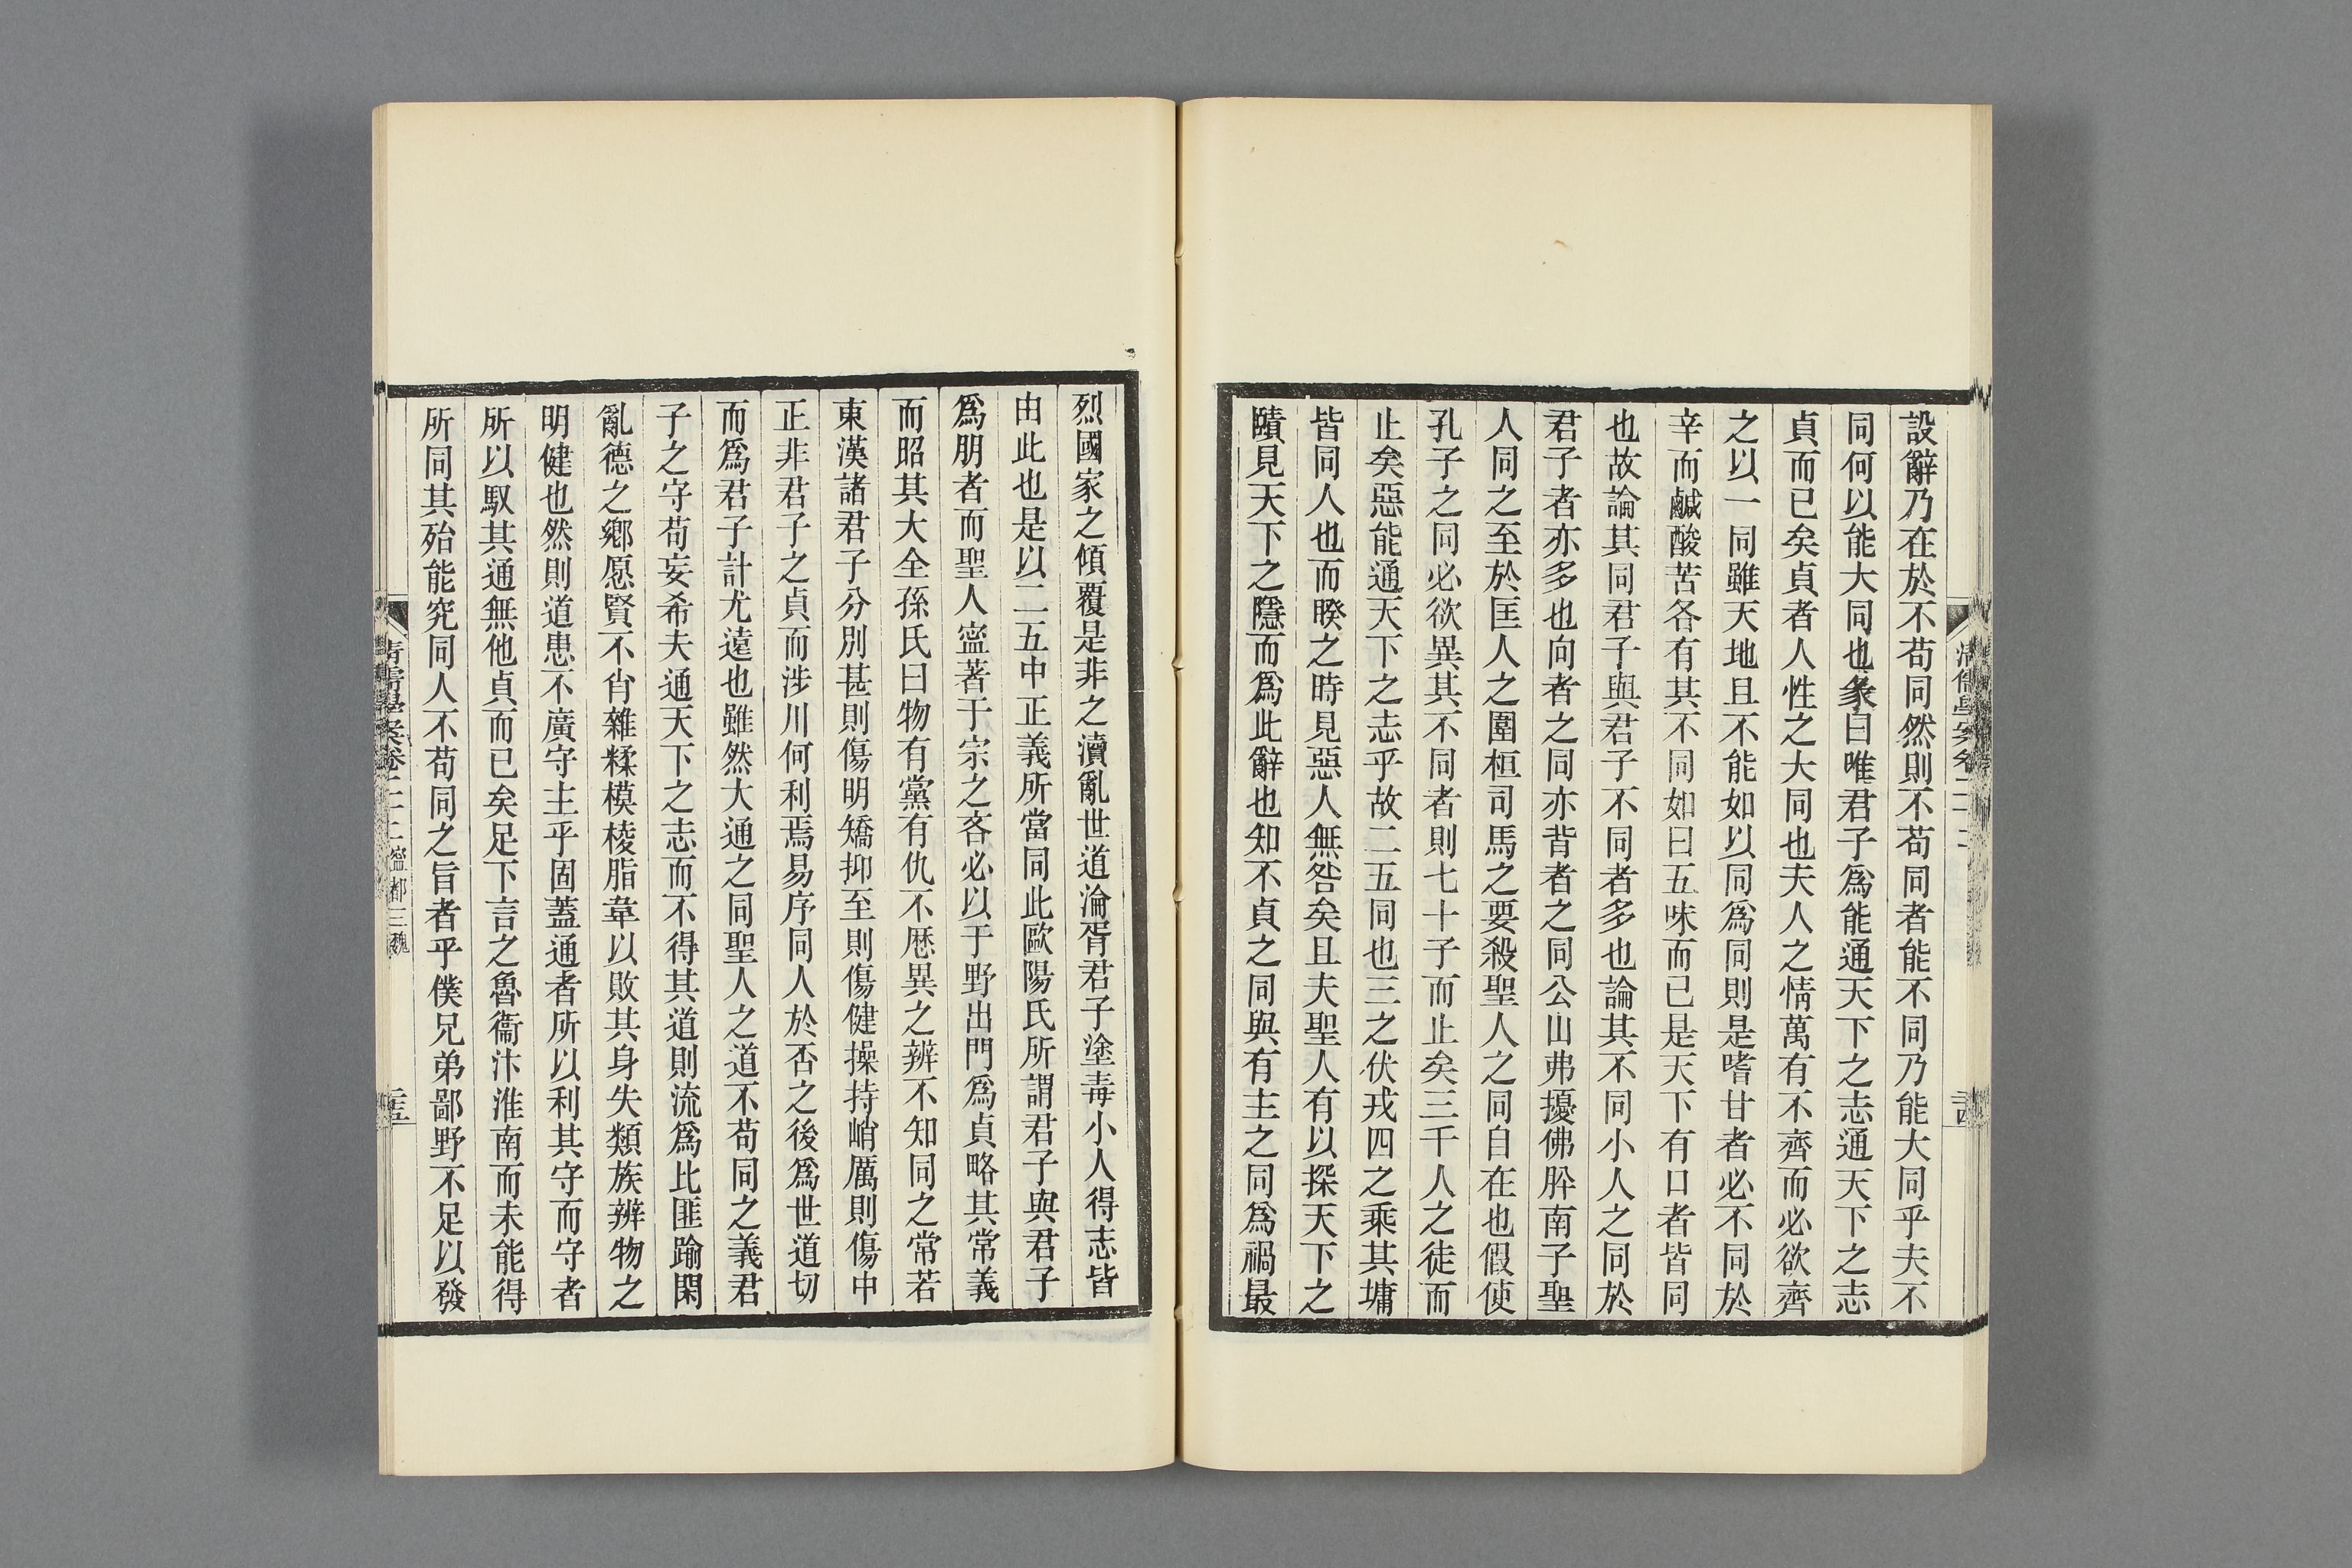 設辭乃在於不苟同然則不苟同者能不同乃能大同乎夫不
同何以能大同也彖曰唯君子爲能通天下之志通天下之志
貞而已矣貞者人性之大同也夫人之情萬有不齊而必欲齊
之以一同雖天地且不能如以同爲同則是嗜甘者必不同於
辛而鹹酸苦各有其不同如曰五味而已是天下有口者皆同
也故論其同君子與君子不同者多也論其不同小人之同於
君子者亦多也向者之同亦背者之同公山弗擾佛肸南子聖
人同之至於匡人之圍桓司馬之要殺聖人之同自在也假使
孔子之同必欲異其不同者則七十子而止矣三千人之徒而
止矣惡能通天下之志乎故二五同也三之伏戎四之乘其墉
皆同人也而睽之時見惡人無咎矣且夫聖人有以探天下之
賾見天下之隱而爲此辭也知不貞之同與有主之同爲禍最
清儒學案卷二十二
二十四
烈國家之傾覆是非之瀆亂世道淪胥君子塗毒小人得志皆
由此也是以二五中正義所當同此歐陽氏所謂君子與君子
爲朋者而聖人寍著于宗之吝必以于野出門爲貞略其常義
而昭其大全孫氏曰物有黨有仇不厯異之辨不知同之常若
東漢諸君子分別甚則傷明矯抑至則傷健操持峭厲則傷中
正非君子之貞而涉川何利焉易序同人於否之後爲世道切
而爲君子計尤遠也雖然大通之同聖人之道不苟同之義君
子之守苟妄希夫通天下之志而不得其道則流爲比匪踰閑
亂德之鄉愿賢不肖雜糅模棱脂韋以敗其身失類族辨物之
明健也然則道患不廣守主乎固蓋通者所以利其守而守者
所以馭其通無他貞而已矣足下言之魯衞汴淮南而未能得
所同其殆能究同人不苟同之旨者乎僕兄弟鄙野不足以發
清儒學案卷二十二 寍都三魏
二十五